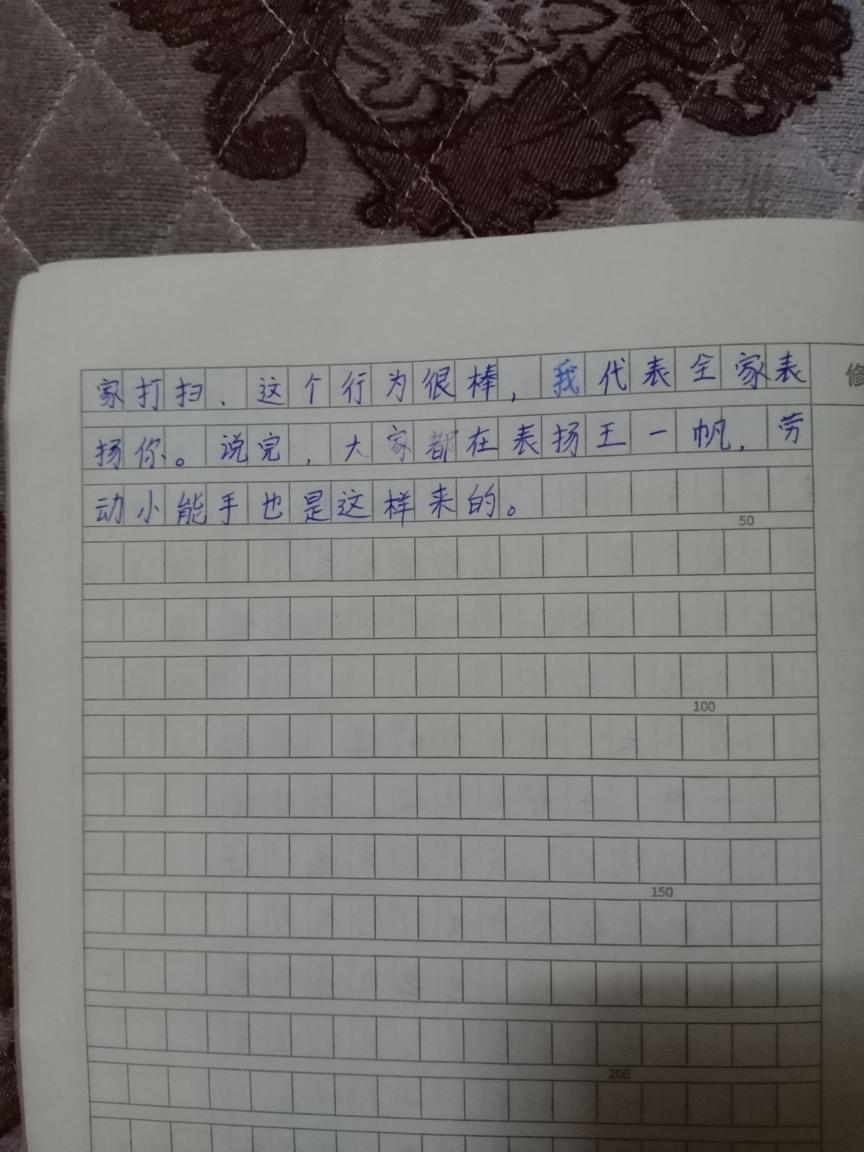 家打扫、这个行为很棒，我代表全家表
扬你。说完，大家都在表扬王一帆，劳
动小能手也是这样来的。
50
100
150
200
修